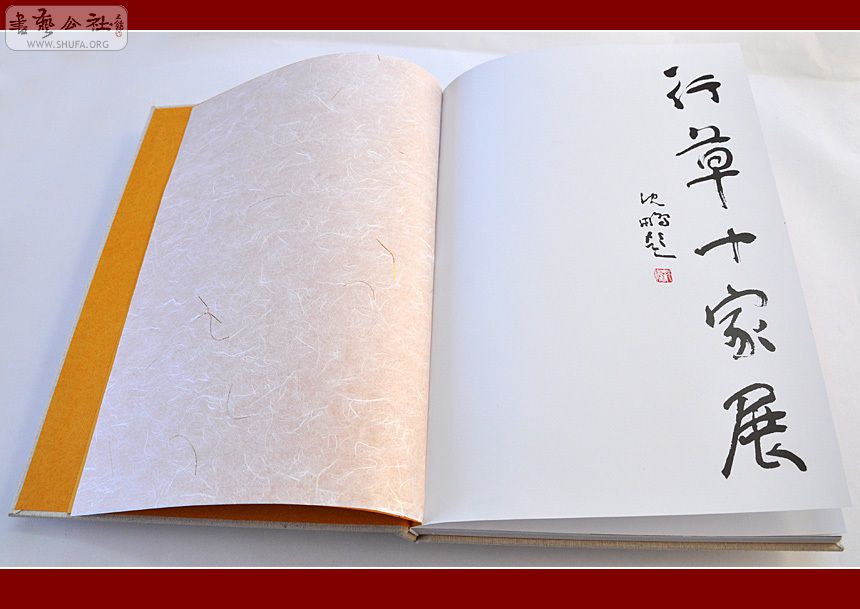 書藝公社
WWW.SHUFA.ORG
行草十家展
沈鹏题